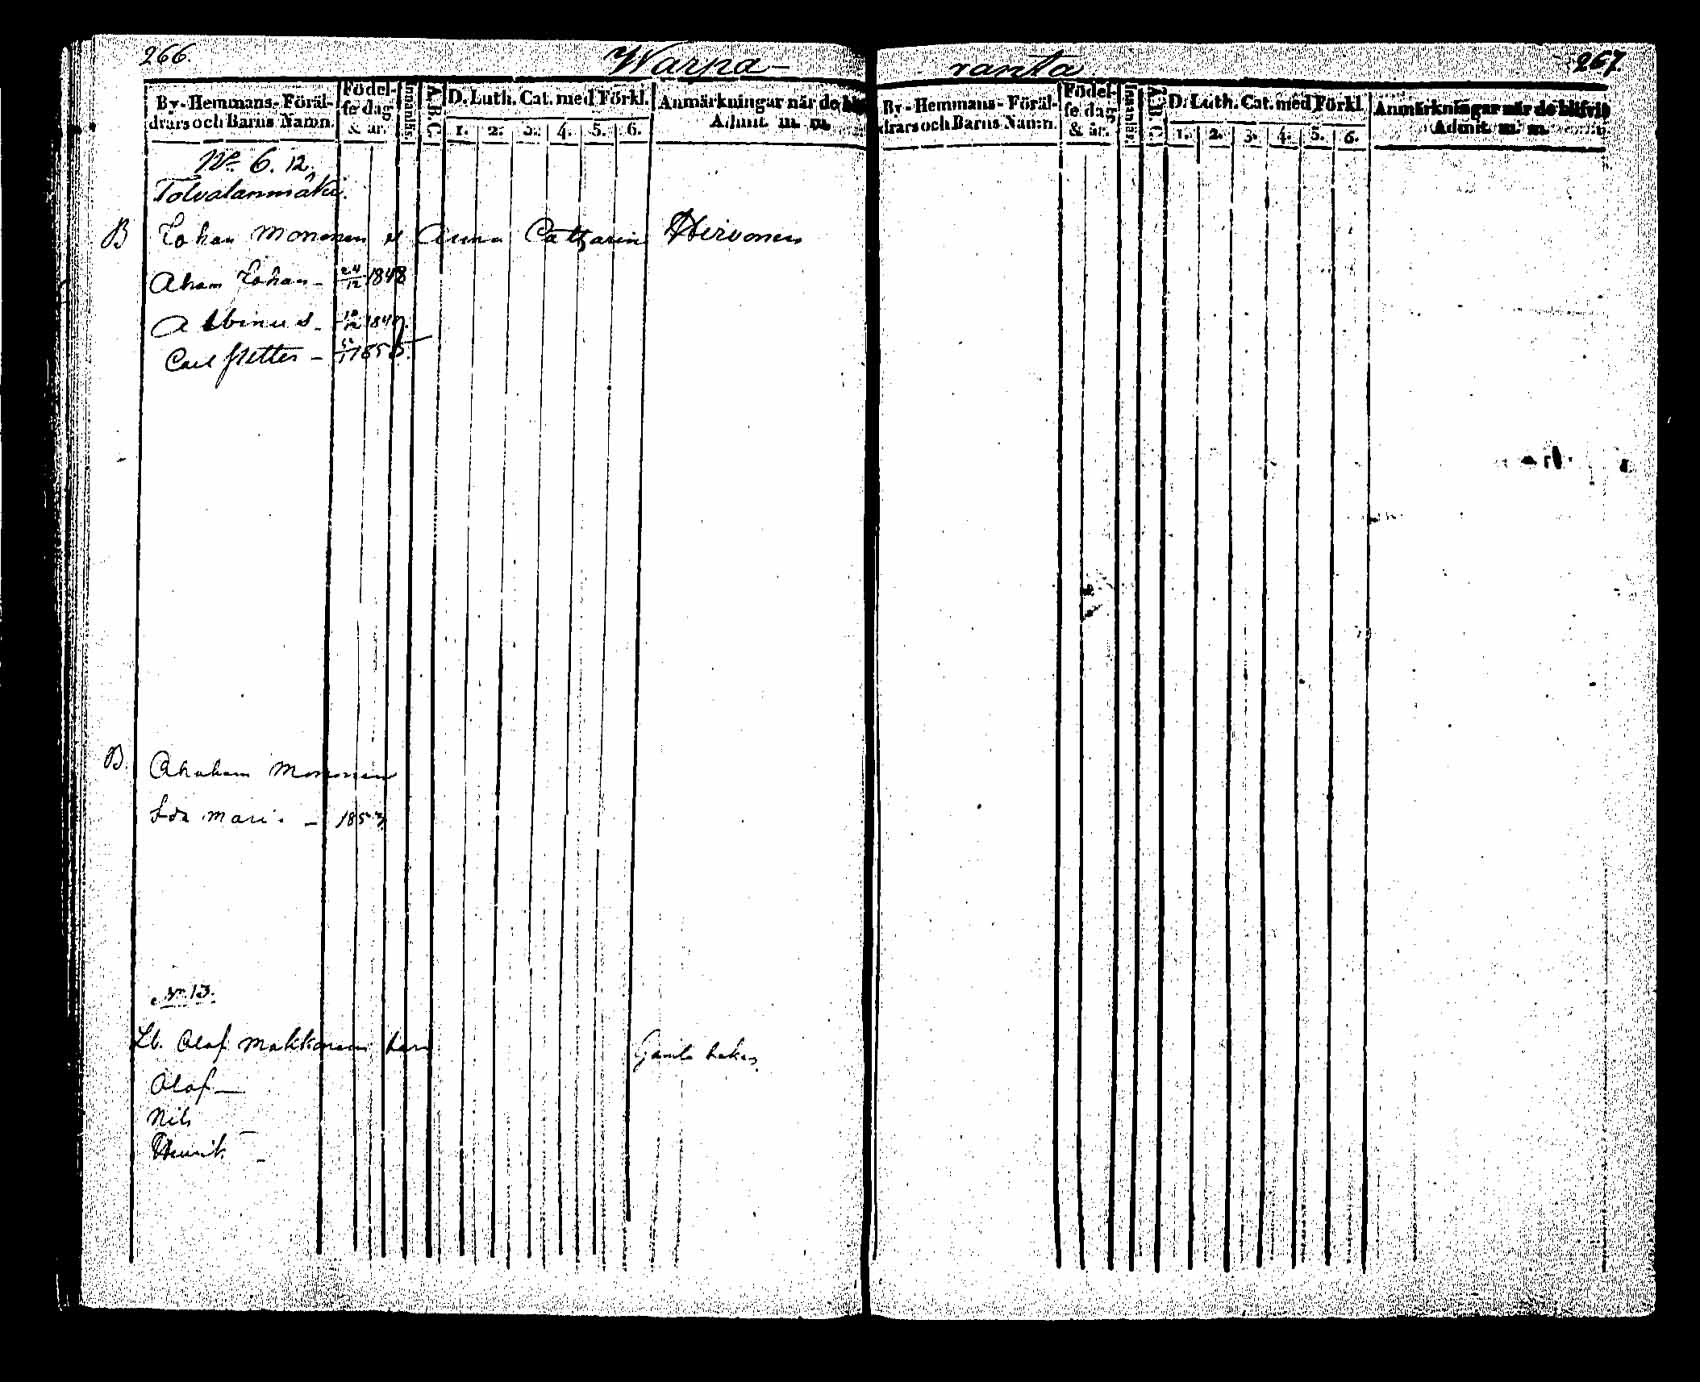 266.
Warpa-
By- Hemmans- Föräl-
drars och Barns Namn.
Födel-
se dag
& år.
A.B.C.
D. Luth. Cat. med Förkl.
1. 2. 3. 4. 5. 6.
Anmärkningar när de
Admit. m. m.
No 6. 12.
Tolvalanmäki.
B Johan Mononen Anna Catharina Hirvonen
Johan - 24/12 1848
Albinus -
Carl Petter -
B. Abraham Mononen
Ida Mari - 1853
No 13.
Lb. Olof Makkonens barn Gamla boken
Olof -
Nils -
Henrik -
ranta
267.
By- Hemmans- Föräl-
drars och Barns Namn.
Födel-
se dag
& år.
Innanlär.
A.B.C.
D. Luth. Cat. med Förkl.
1. 2. 3. 4. 5. 6.
Anmärkningar när de blifvit
Admit. m. m.